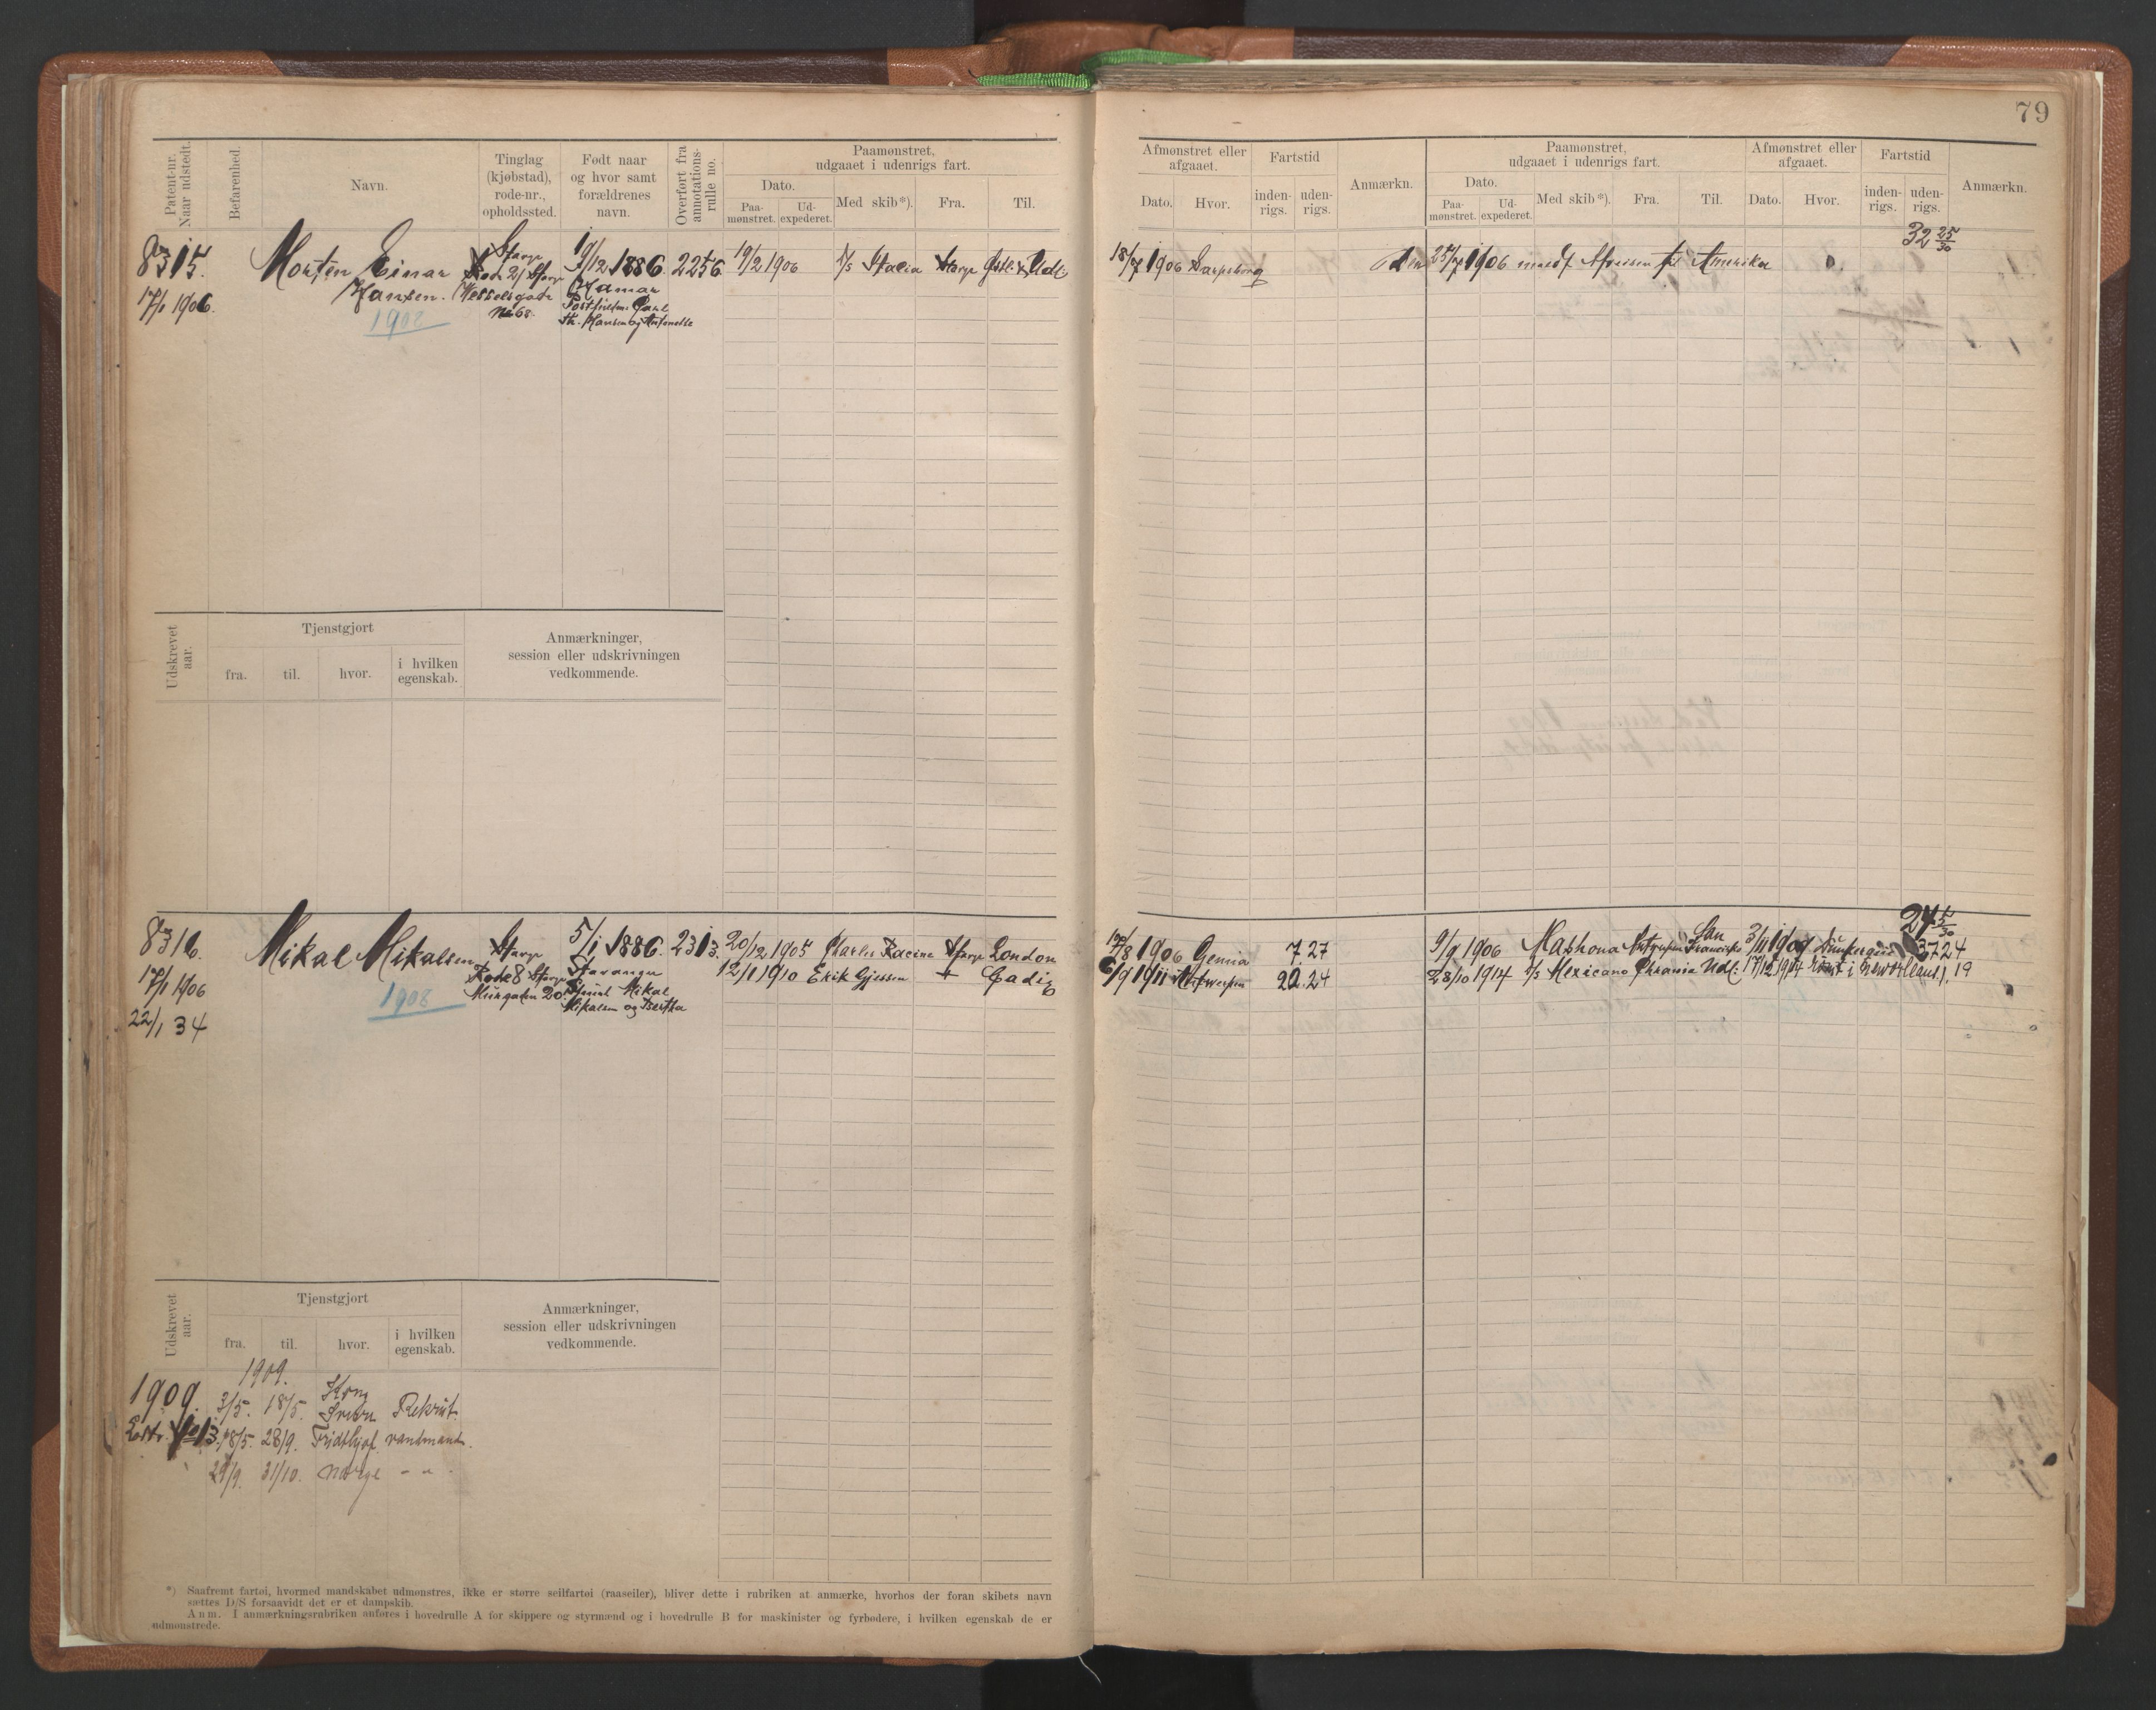 79
Patent-nr. Naar udstedt.
Befarenhed.
Navn.
Tinglag (kjøbstad), rode-nr., opholdssted.
Født naar og hvor samt forældrenes navn.
Overført fra annotations-rulle no.
Paamønstret, udgaaet i udenrigs fart.
Dato.
Paa-mønstret.
Ud-expederet.
Med skib*).
Fra.
Til.
Afmønstret eller afgaaet.
Dato.
Hvor.
Fartstid
inden-rigs.
uden-rigs.
Anmærkn.
Paamønstret, udgaaet i udenrigs fart.
Dato.
Paa-mønstret.
Ud-expederet.
Med skib*).
Fra.
Til.
Afmønstret eller afgaaet.
Dato.
Hvor.
Fartstid
inden-rigs.
uden-rigs.
Anmærkn.
8315.
17/1 1906.
Morten Einar
Hansen.
1908
Stavgr
Rode 21 Stavgr
Wesselsgade
No 68.
19/12 1886.
Hamar
Th. Hansen og Antonette
2256
19/2 1906
Stavgr
Udl:
18/7 1906 Sarpsborg
den 25/7 1906 til Amerika
32 25/30
Udskrevet aar.
Tjenstgjort
fra.
til.
hvor.
i hvilken egenskab.
Anmærkninger, session eller udskrivningen vedkommende.
8316.
17/1 1906
22/1 34
Mikal Mikalsen
1908
Stavgr
Rode 8 Stavgr
Murgaden 20.
5/1 1886.
Stavanger
Mikal
Mikalsen og Bertha
2313.
20/12 1905 Charles Racine Stavgr London
12/1 1910 Erik Gjessen + Cadiz
17/8 1906 Genua 7.27
6/9 1911 Antwerpen 20.24
9/9 1906 Mashona Antwerpen San Francisko 3/11 1907 37 24
28/10 1914 S/s Mexicano Chrania Udl: 17/12 1914 Rømt i Neworleans 1.19
24 5/30
Udskrevet aar.
Tjenstgjort
fra.
til.
hvor.
i hvilken egenskab.
Anmærkninger, session eller udskrivningen vedkommende.
1909.
1909.
3/5. 18/5. Kong Sverre Rekrut.
18/5. 28/9. Fridthjof. vandmand.
29/9. 31/10. Norge - " -
*) Saafremt fartøi, hvormed mandskabet udmønstres, ikke er større seilfartøi (raaseiler), bliver dette i rubriken at anmærke, hvorhos der foran skibets navn
sættes D/S forsaavidt det er et dampskib.
Anm. I anmærkningsrubriken anføres i hovedrulle A for skippere og styrmænd og i hovedrulle B for maskinister og fyrbødere, i hvilken egenskab de er
udmønstrede.